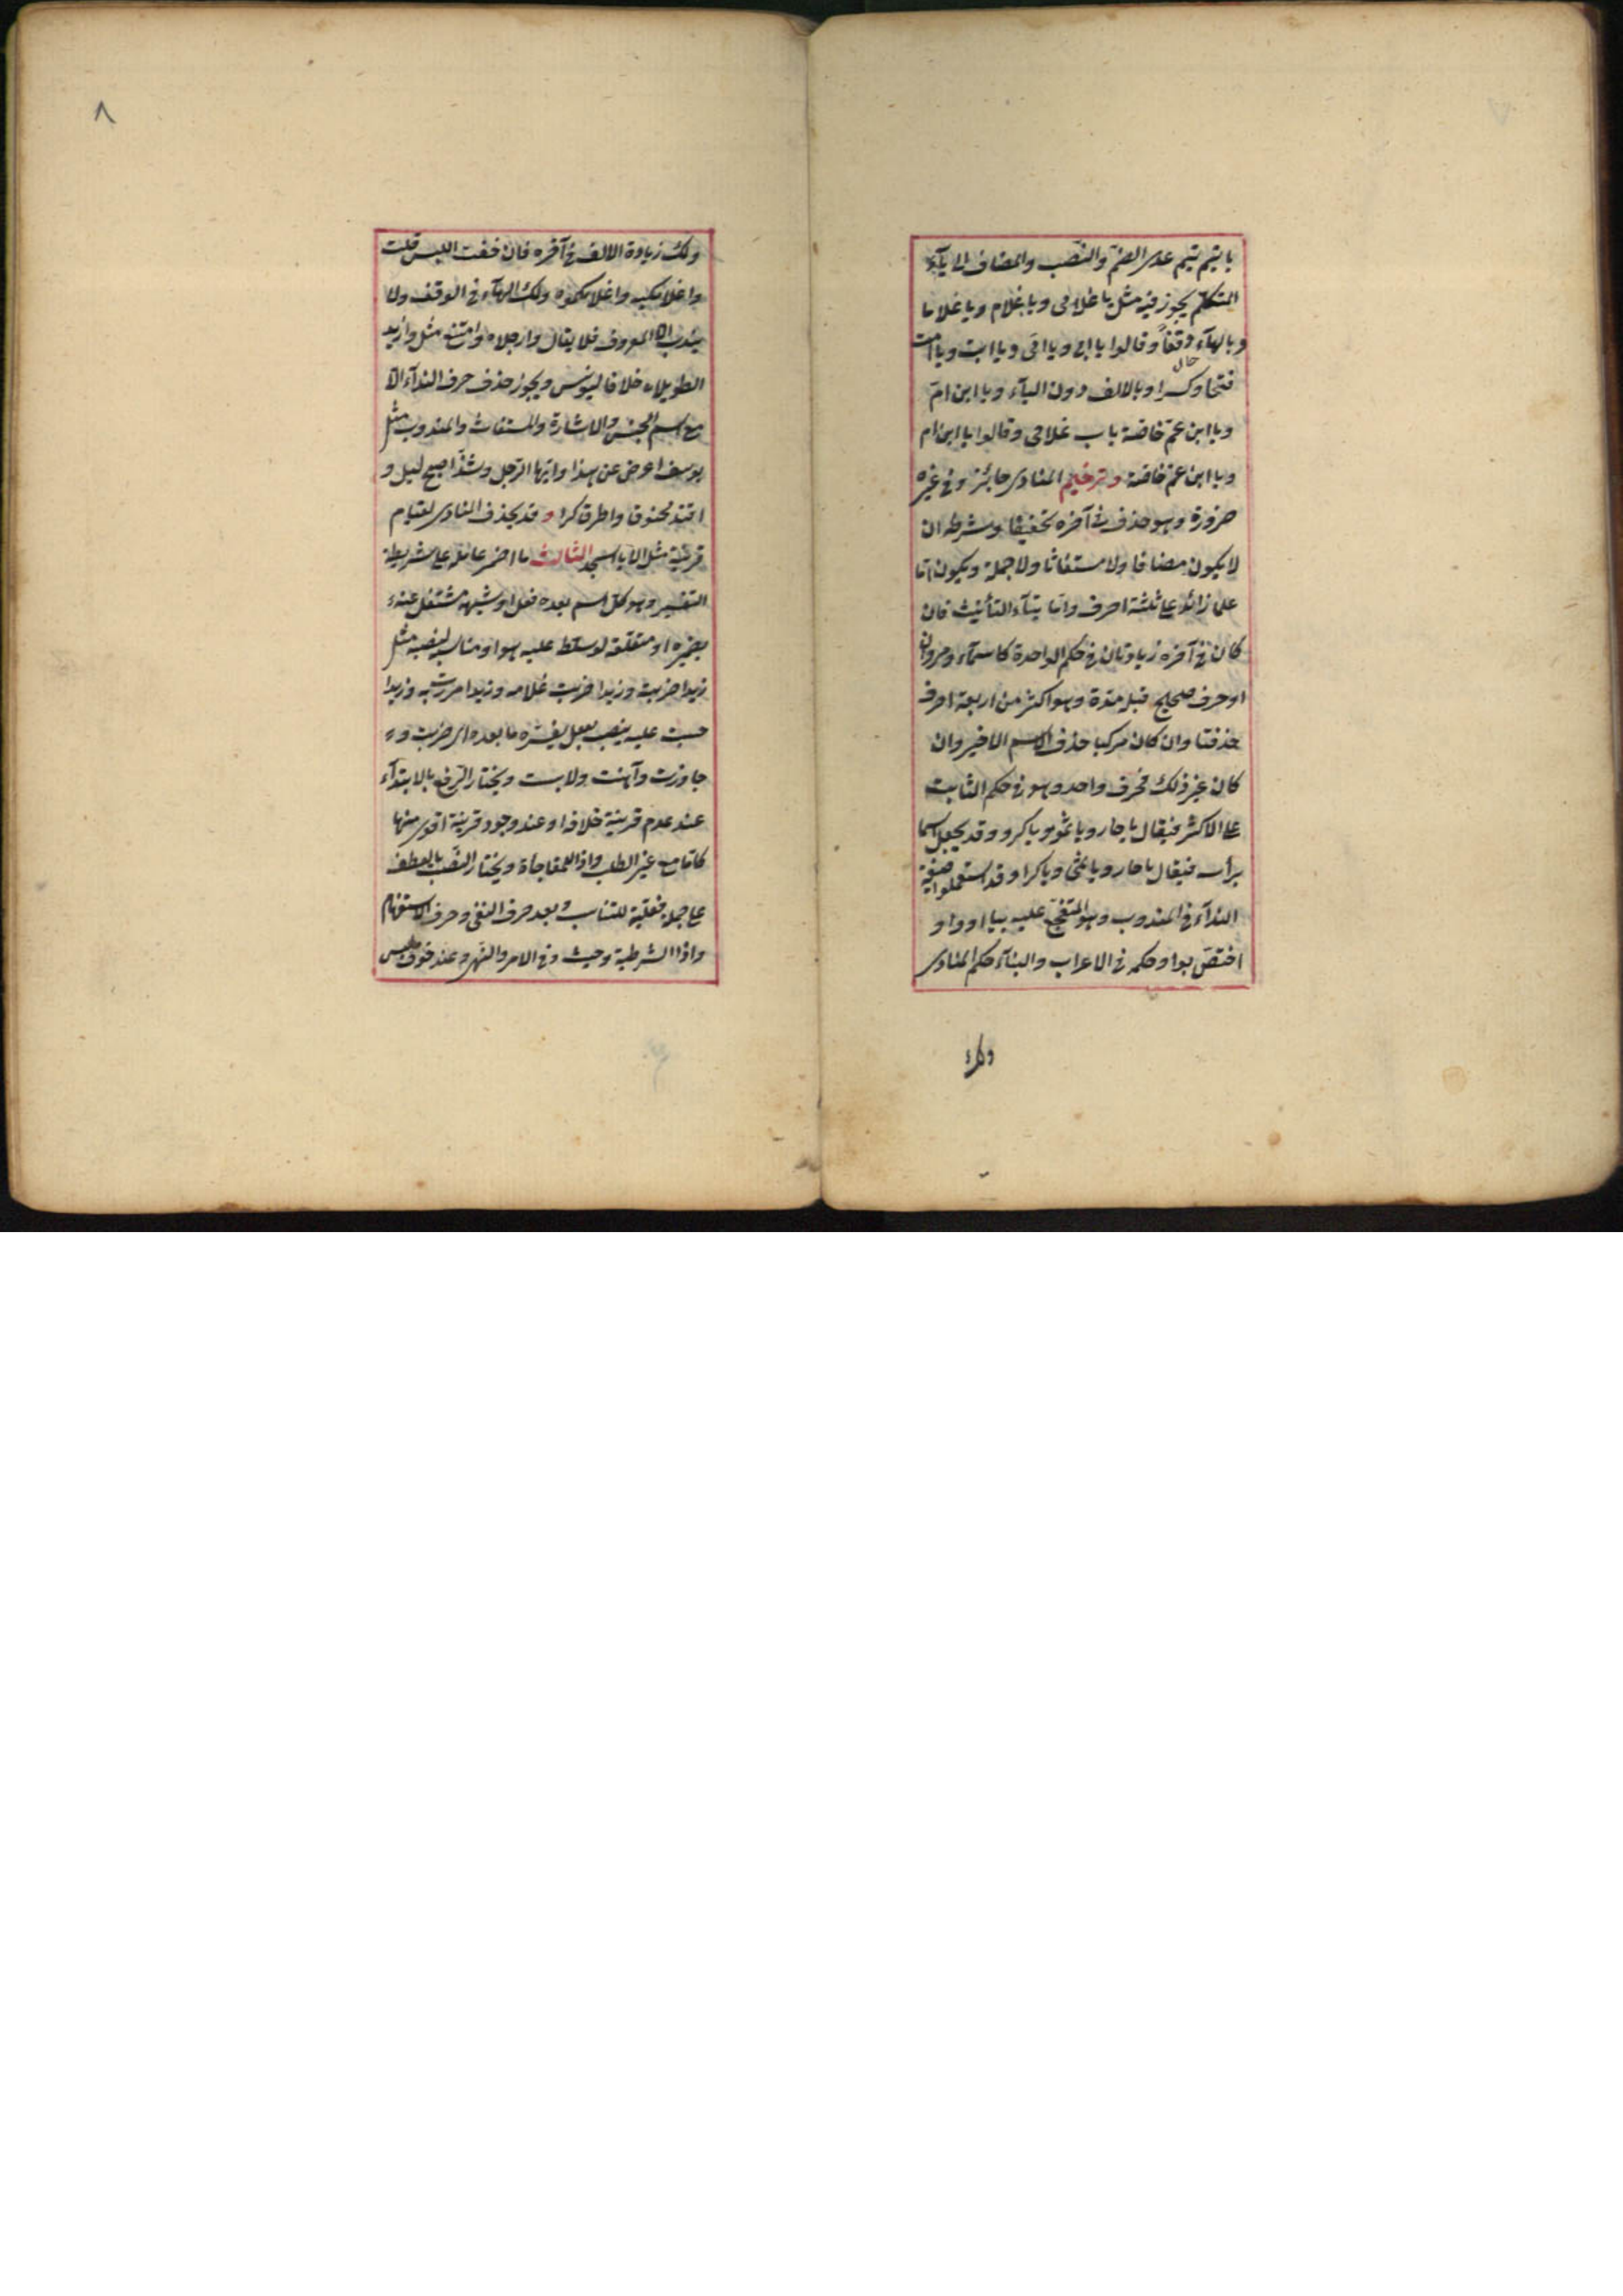 يا تيم تيم عدى الضم والنصب والمضاف الى ياء
المتكلم يجوز فيه مثل يا غلامى ويا غلام ويا غلاما
وبالهاء وقفاً وقالوا يا ابى ويا امى ويا ابت ويا امت
حال
فتحا وكسرا وبالالف دون الياء ويا ابن ام
ويا ابن عم خاصة باب غلامى وقالوا يا ابن ام
ويا ابن عم خاصة وترخيم المنادى جائز وفى غيره
ضرورة وهو حذف فى آخره تخفيفا وشرطه ان
لا يكون مضافا ولا مستغاثا ولا جملة ويكون اما
علما زائد على ثلثة احرف واما بتاء التأنيث فان
كان فى آخره زيادتان فى حكم الواحدة كاسماء ومروان
او حرف صحيح قبله مدة وهو اكثر من اربعة احرف
حذفتا وان كان مركبا حذف الاسم الاخير وان
كان غير ذلك فحرف واحد وهو فى حكم الثابت
على الاكثر فيقال يا حار ويا ثمو ويا كرو وقد يجعل اسما
برأسه فيقال يا حار ويا ثمى ويا كرا وقد استعملوا صيغة
النداء فى المندوب وهو المتفجع عليه بيا او وا و
اختص بوا وحكمه فى الاعراب والبناء حكم المنادى
ولك
٨
ولك زيادة الالف فى آخره فان خفت اللبس قلت
واغلامكيه واغلامكموه ولك الهاء فى الوقف ولا
يندب الا المعروف فلا يقال وارجلاه وامتنع مثل وازيد
الطويلاه خلافا ليونس ويجوز حذف حرف النداء الا
مع اسم الجنس والاشارة والمستغاث والمندوب مثل
يوسف اعرض عن هذا وايها الرجل وشذ اصبح ليل و
افتد مخنوق واطرق كرا وقد يحذف المنادى لقيام
قرينة مثل الا يا اسجد الثالث ما اضمر عامله على شريطة
التفسير وهو كل اسم بعده فعل او شبهه مشتغل عنه
بضميره او متعلقه لو سلط عليه هو او مناسبه لنصبه مثل
زيدا ضربت وزيدا ضربت غلامه وزيدا مررت به وزيدا
حبست عليه ينصب بفعل يفسره ما بعده اى ضربت و
جاوزت واهنت ولابست ويختار الرفع بالابتداء
عند عدم قرينة خلافه او عند وجود قرينة اقوى منها
كاما مع غير الطلب واذا للمفاجأة ويختار النصب بالعطف
على جملة فعلية للتناسب وبعد حرف النفى وحرف الاستفهام
واذا الشرطية وحيث وفى الامر والنهى وعند خوف لبس